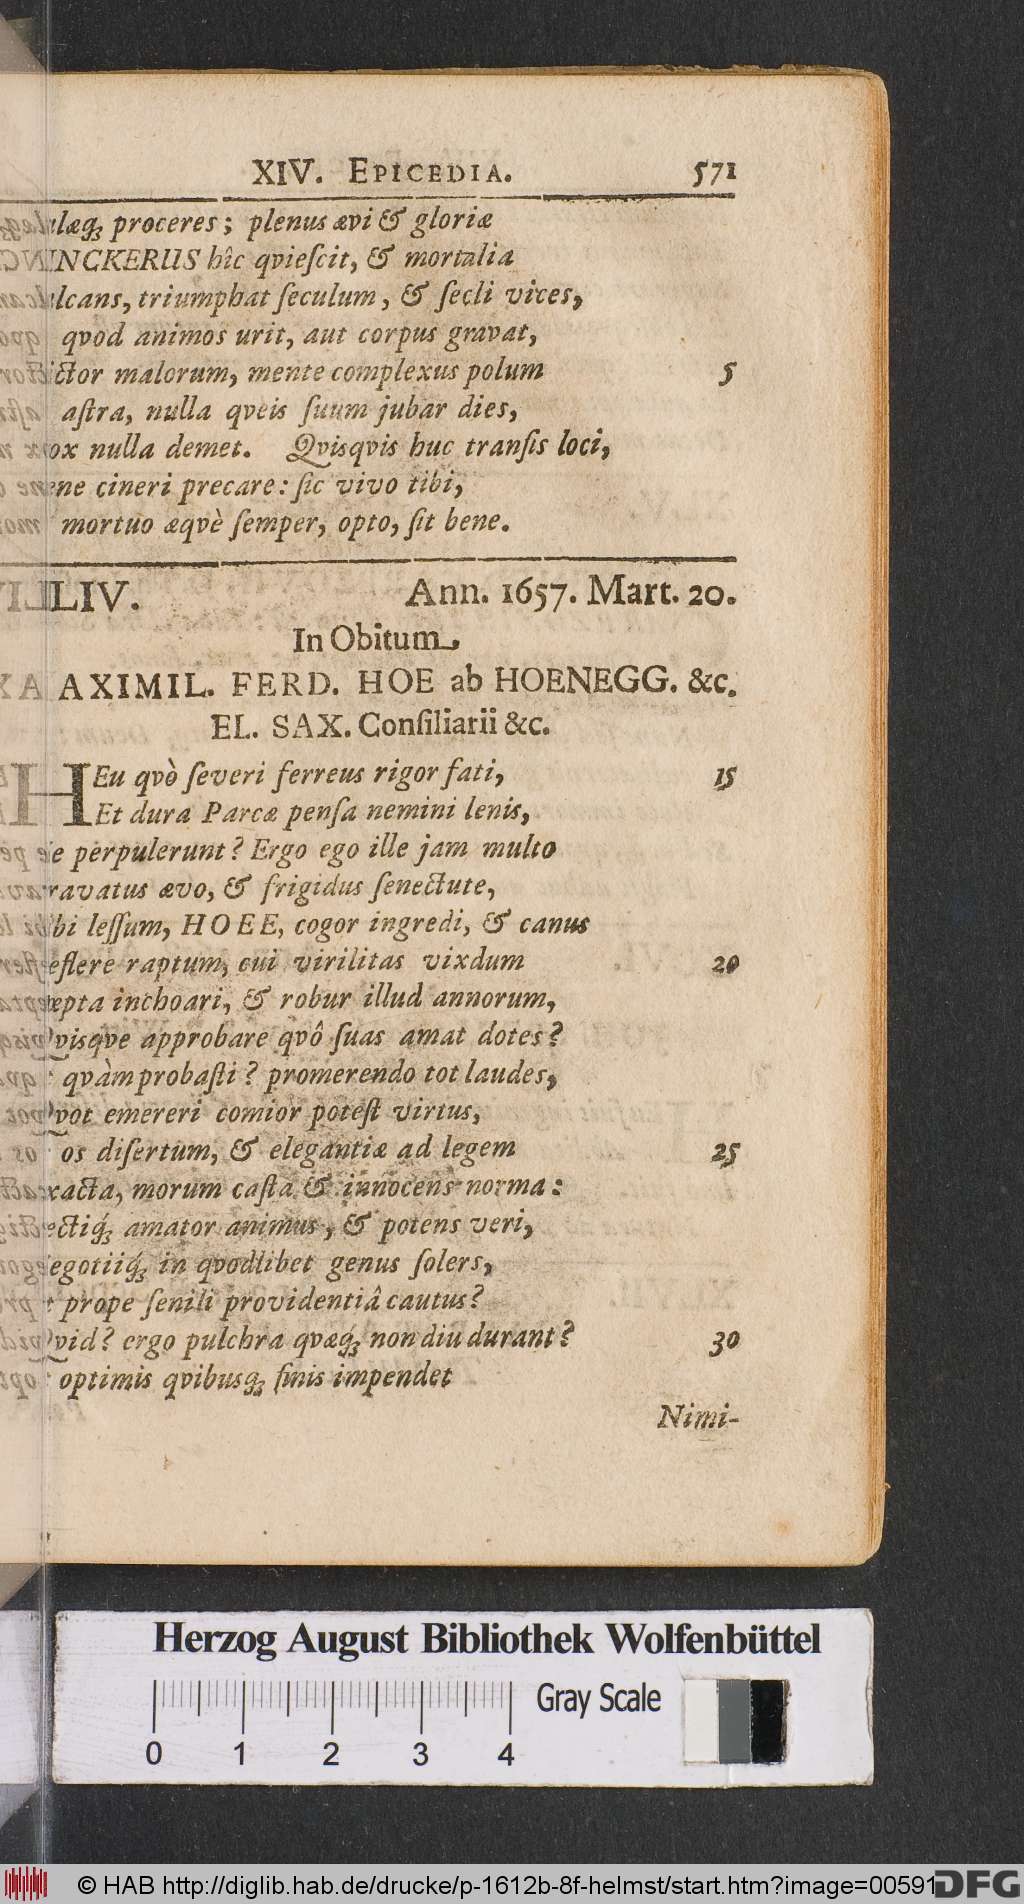 XIV. EPICEDIA. 571
proceres; plenus ævi & gloriæ
hîc qvieſcit, & mortalia
triumphat ſeculum, & ſecli vices,
qvod animos urit, aut corpus gravat,
malorum, mente complexus polum 5
aſtra, nulla qveis ſuum jubar dies,
nulla demet. Qvisqvis huc tranſis loci,
cineri precare: ſic vivo tibi,
mortuo æqvè ſemper, opto, ſit bene.
LIV. Ann. 1657. Mart. 20.
In Obitum
AXIMIL. FERD. HOE ab HOENEGG. &c.
EL. SAX. Conſiliarii &c.
HEu qvò ſeveri ferreus rigor fati, 15
Et dura Parcæ penſa nemini lenis,
perpulerunt? Ergo ego ille jam multo
ævo, & frigidus ſenectute,
leſſum, HOEE, cogor ingredi, & canus
raptum, cui virilitas vixdum 20
inchoari, & robur illud annorum,
approbare qvô ſuas amat dotes?
qvàm probaſti? promerendo tot laudes,
emereri comior poteſt virtus,
os diſertum, & elegantiæ ad legem 25
morum caſta & innocens norma:
amator animus, & potens veri,
in qvodlibet genus ſolers,
prope ſenili providentiâ cautus?
ergo pulchra qvæq́; non diu durant? 30
optimis qvibusq; finis impendet
Nimi-
Herzog August Bibliothek Wolfenbüttel
Gray Scale
0 1 2 3 4
© HAB http://diglib.hab.de/drucke/p-1612b-8f-helmst/start.htm?image=00591
DFG